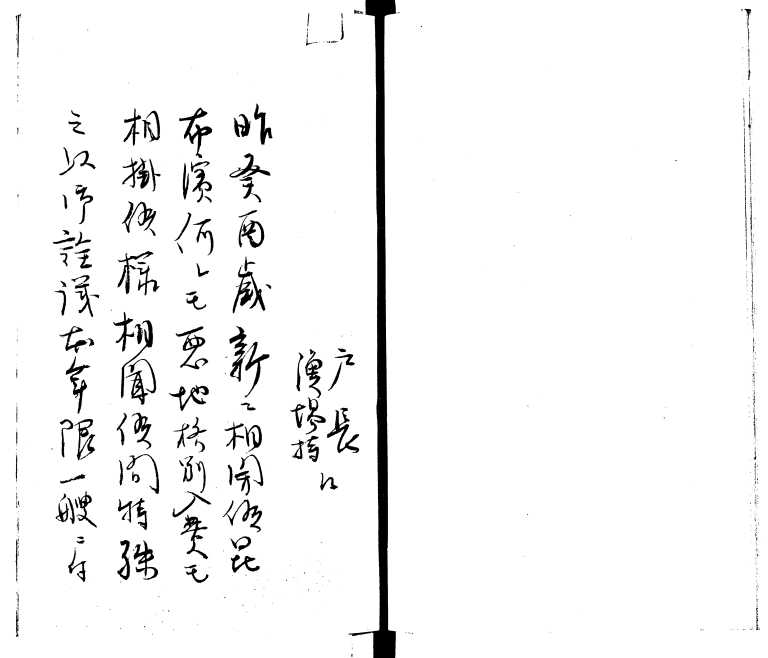 戸長
漁場持
江
昨癸酉歳新ニ相開候昆
布濱何レモ悪地格別入費モ
相掛候様相聞候間特殊
之以御詮議本年限一艘ニ付